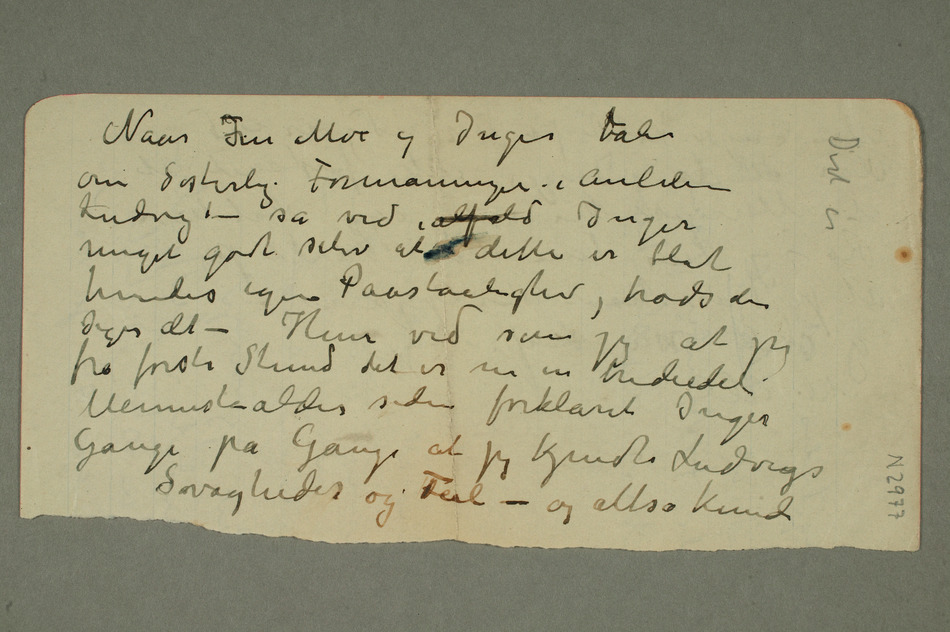 Naar Fru Moe og Inger taler
om Søsterlig Formaninger i Anleden
Ludvig – så ved Inger
meget godt selv at dette er blat
hendes egen Paastaalighed, trods den
siges æt – Hun ved som jeg at jeg
fra første Stund det er nu en trediedel
Menneskealder siden forklaret Inger
Gange på Gange at jeg kjendte Ludvigs
Svagheder og Feil – og altså kund
Det er
N 2977